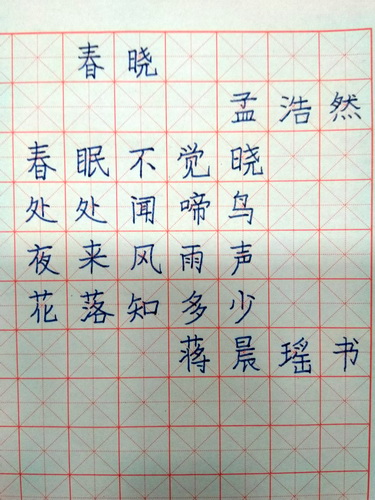 春晓
孟浩然
春眠不觉晓
处处闻啼鸟
夜来风雨声
花落知多少
蒋晨瑶书